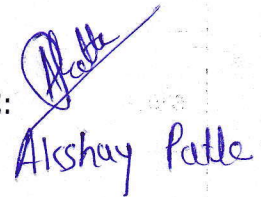 :
Akshay Patle